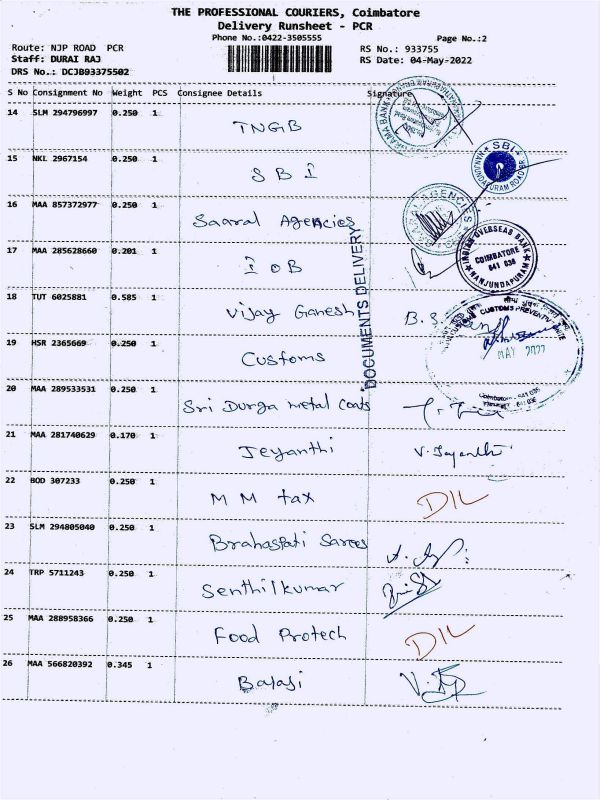 THE PROFESSIONAL COURIERS, Coimbatore
Delivery Runsheet - PCR
Phone No.:0422-3505555
Page No.:2
Route: NJP ROAD PCR
RS No.: 933755
Staff: DURAI RAJ
RS Date: 04-May-2022
DRS No.: DCJB93375502
S No Consignment No Weight PCS Consignee Details Signature
14 SLM 294796997 0.250 1 TNGB
15 NKL 2967154 0.250 1 SBI
SBI
NANJUNDAPURAM ROAD BR.
16 MAA 857372977 0.250 1 Saaral Agencies
AGENCIES
17 MAA 285628660 0.201 1 IOB
INDIAN OVERSEAS BANK
COIMBATORE
641 036
NANJUNDAPURAM
DOCUMENTS DELIVERY
18 TUT 6025881 0.585 1 Vijay Ganesh B.S.
19 HSR 2365669 0.250 1 Customs
CUSTOMS PREVENTIVE
MAY 2022
Coimbatore - 641 036
20 MAA 289533531 0.250 1 Sri Durga metal Coats
21 MAA 281740629 0.170 1 Jeyanthi V. Jayanthi
22 BOD 307233 0.250 1 M M tax DIL
23 SLM 294805040 0.250 1 Brahaspati Sarees
24 TRP 5711243 0.250 1 Senthilkumar
25 MAA 288958366 0.250 1 Food Protech DIL
26 MAA 566820392 0.345 1 Balaji